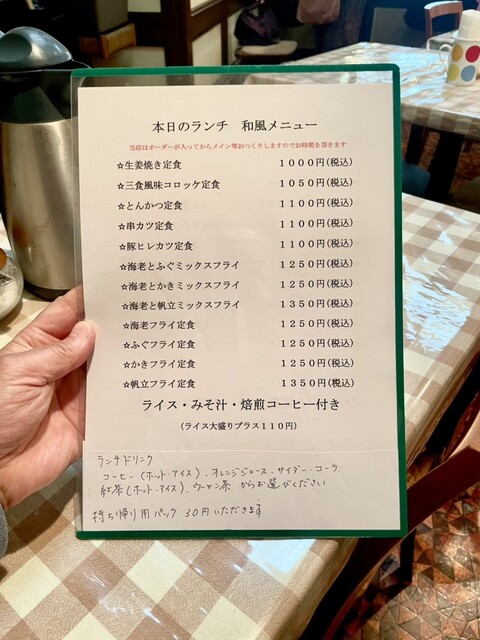 本日のランチ 和風メニュー
当店はオーダーが入ってからメイン等おつくりしますのでお時間を頂きます
☆生姜焼き定食 1000円(税込)
☆三食風味コロッケ定食 1050円(税込)
☆とんかつ定食 1100円(税込)
☆串カツ定食 1100円(税込)
☆豚ヒレカツ定食 1100円(税込)
☆海老とふぐミックスフライ 1250円(税込)
☆海老とかきミックスフライ 1250円(税込)
☆海老と帆立ミックスフライ 1350円(税込)
☆海老フライ定食 1250円(税込)
☆ふぐフライ定食 1250円(税込)
☆かきフライ定食 1250円(税込)
☆帆立フライ定食 1350円(税込)
ライス・みそ汁・焙煎コーヒー付き
(ライス大盛りプラス110円)
ランチドリンク
コーヒー(ホット・アイス)、オレンジジュース・サイダー・コーラ
紅茶(ホット・アイス)、ウーロン茶 からお選びください
持ち帰り用パック 30円いただきます